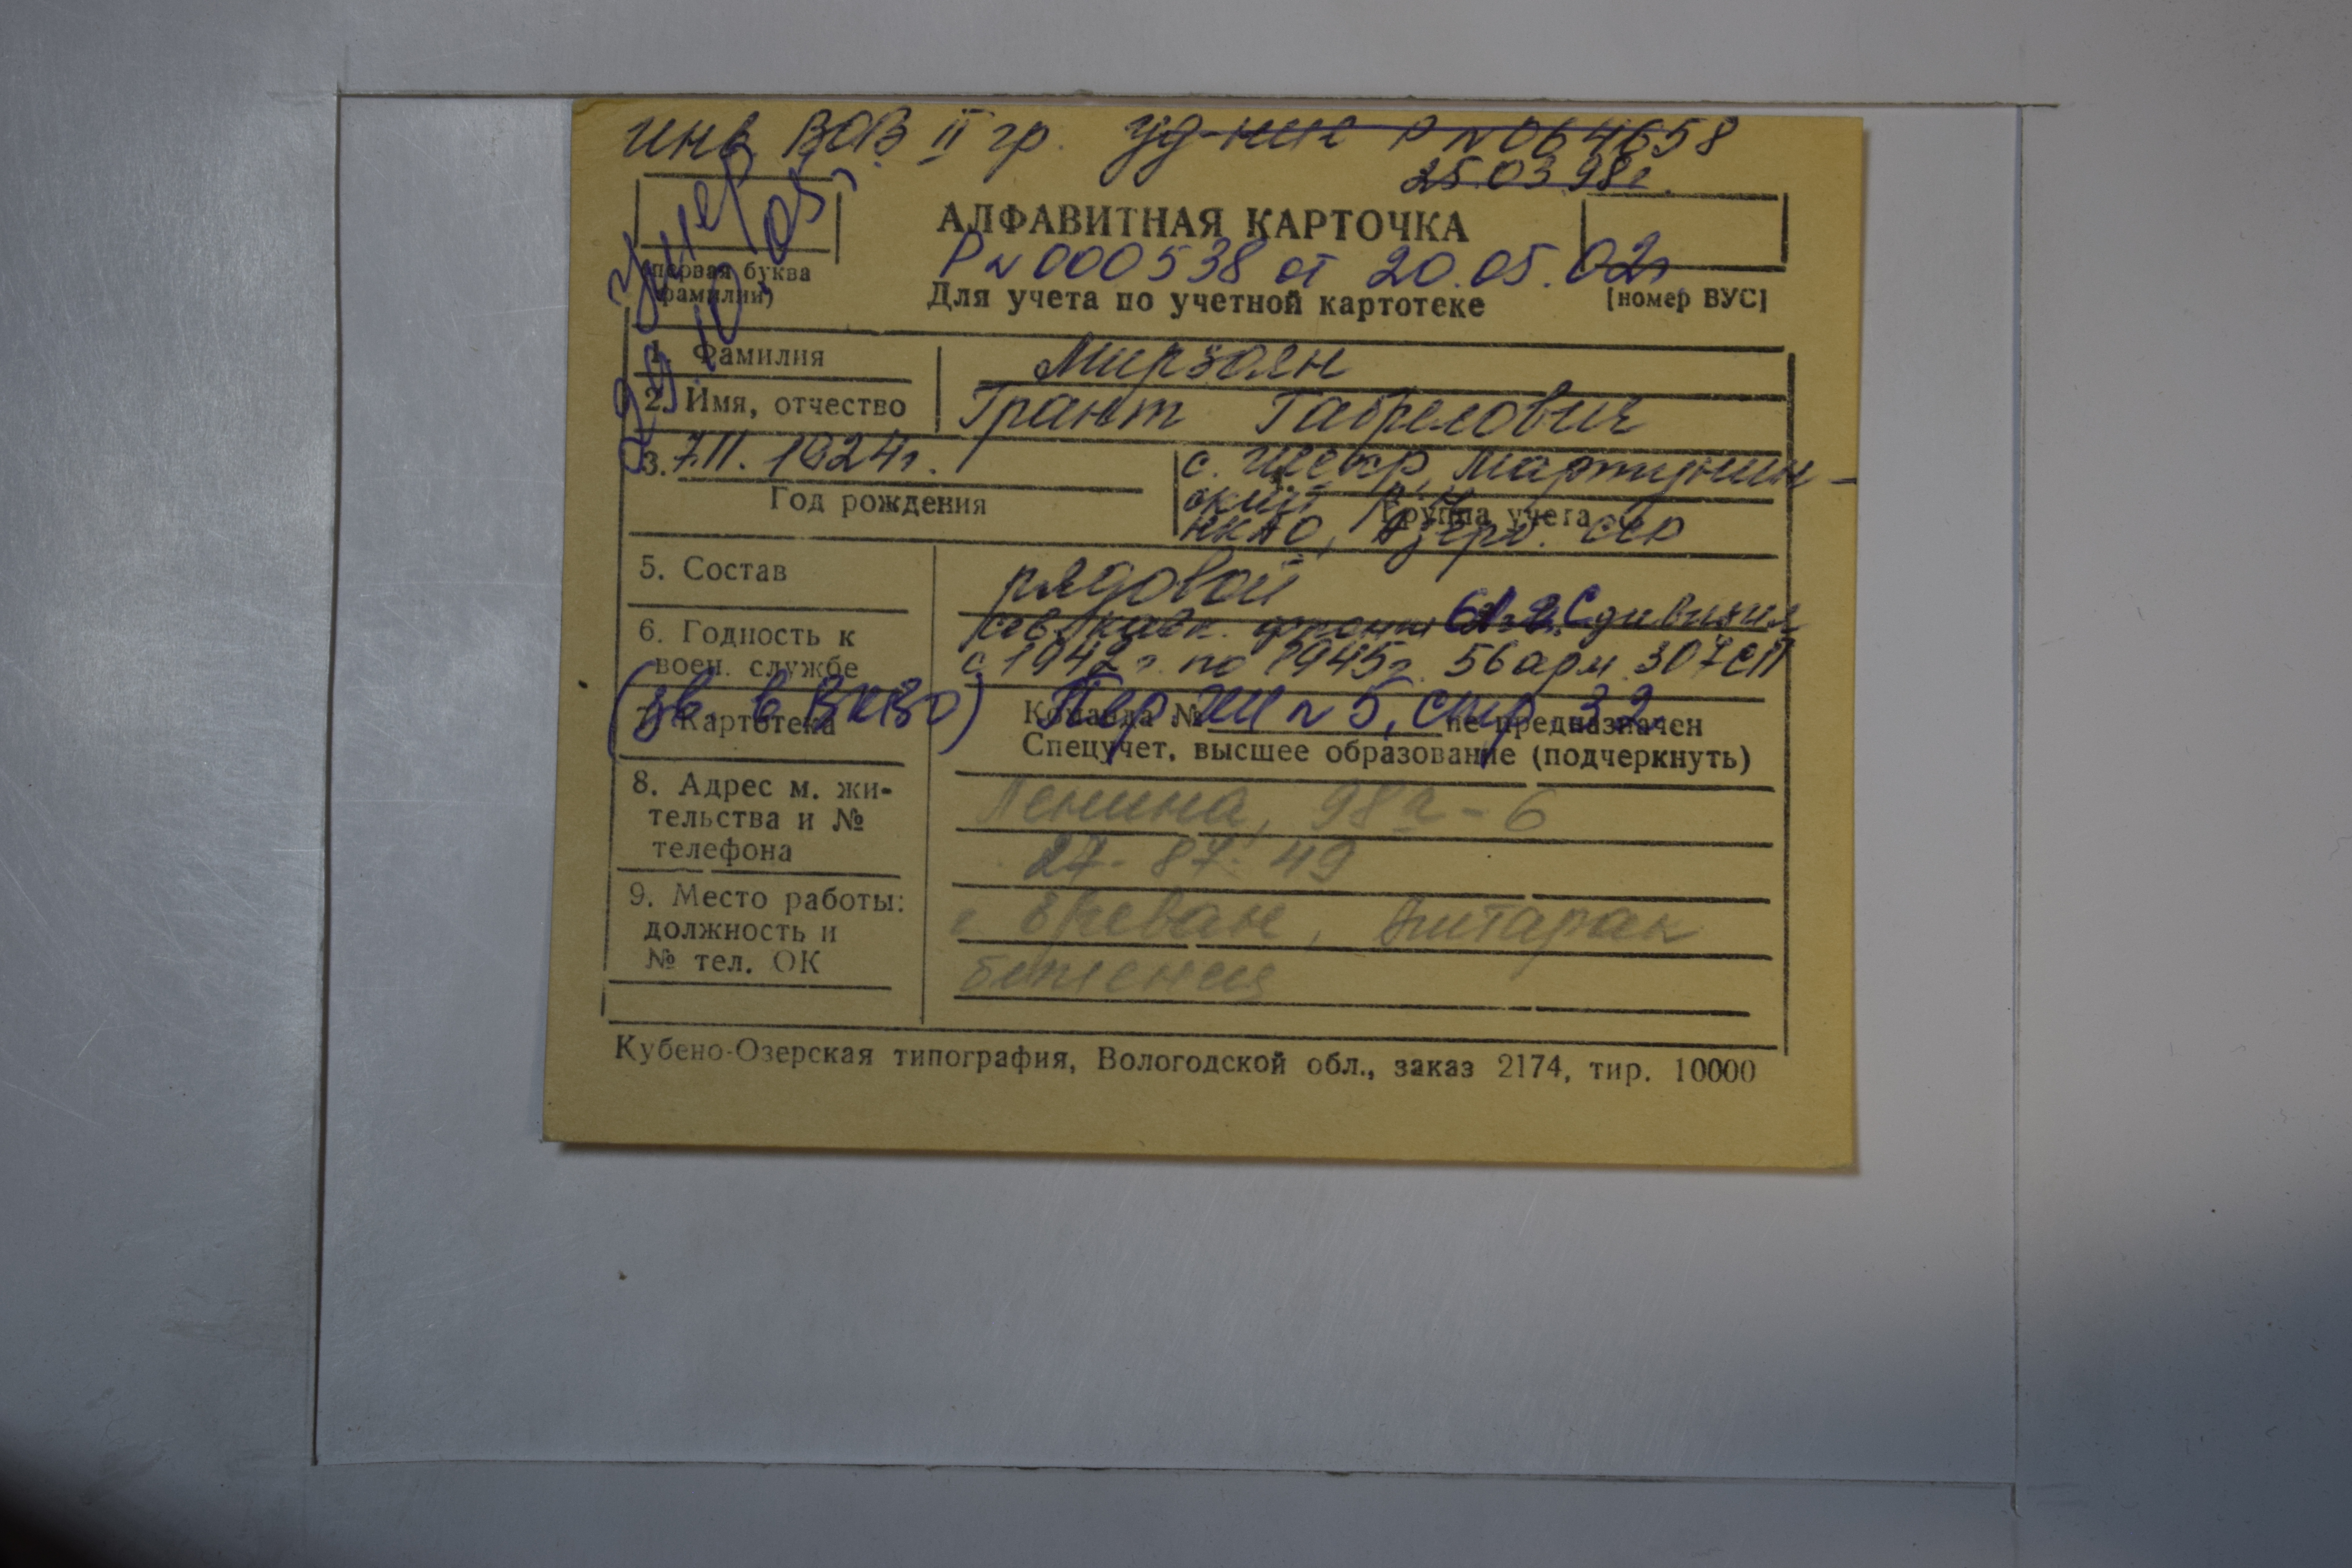 инв. ВОВ II гр. уд-ник Р №064658
25.03.98г.
АЛФАВИТНАЯ КАРТОЧКА
Р№000538 от 20.05.02г
(первая буква
фамилии)
Для учета по учетной картотеке
[номер ВУС]
Умер
29.10.05г
1. Фамилия Мирзоян
2. Имя, отчество Грант Габрелович
3. 7.11. 1924г. с. Мартунин-
Год рождения
ский р-н
Группа учета
НКАО, Азерб. ССР
5. Состав рядовой
6. Годность к
воен. службе
дивизия
с 1942г. по 1945г. 56 арм. 307 СП
(зв. в ВКВО) Пер. №5, стр. 32.
7. Картотека
Команда № не предназначен
Спецучет, высшее образование (подчеркнуть)
8. Адрес м. жи-
тельства и №
телефона
Ленина, 98а - 6
27-87-49
9. Место работы:
должность и
№ тел. ОК
г. Ереван, Аштарак
беженец
Кубено-Озерская типография, Вологодской обл., заказ 2174, тир. 10000